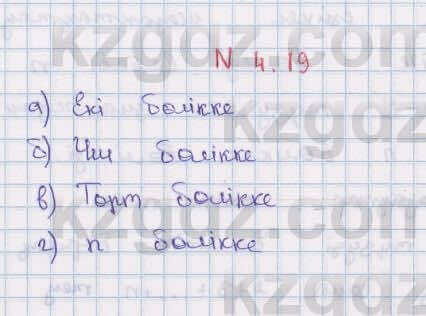 N 4.19
а) Екі бөлікке
б) Үш бөлікке
в) Төрт бөлікке
г) n бөлікке
kzgdz.com